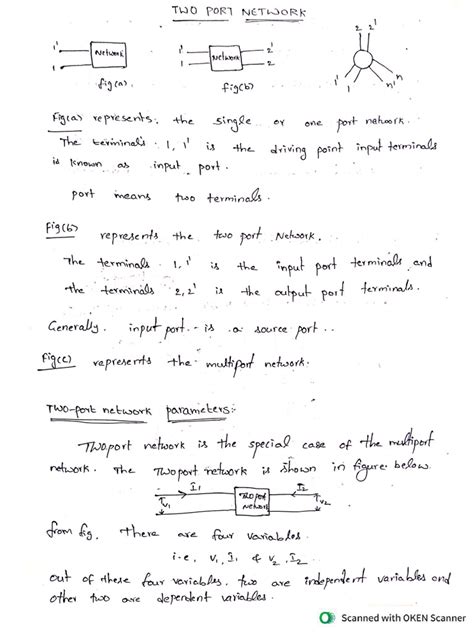 TWO PORT NETWORK
1'
1
Network
fig(a).
1'
1
Network
2'
2
fig(b)
2 2'
1' 1
n' n
Fig(a) represents: the single or one port network.
The terminals 1, 1' is the driving point input terminals
is known as input port.
port means two terminals.
Fig(b) represents the two port Network.
The terminals 1, 1' is the input port terminals and
the terminals 2, 2' is the output port terminals.
Generally. input port is a source port..
Fig(c) represents the multiport network.
Two-port network parameters:-
Two port network is the special case of the multiport
network. The Two port network is shown in figure below
I1
V1
Two port
Network
I2
V2
from fig, there are four variables.
i.e, V1, I1 & V2, I2
out of these four variables, two are independent variables and
other two are dependent variables.
Scanned with OKEN Scanner